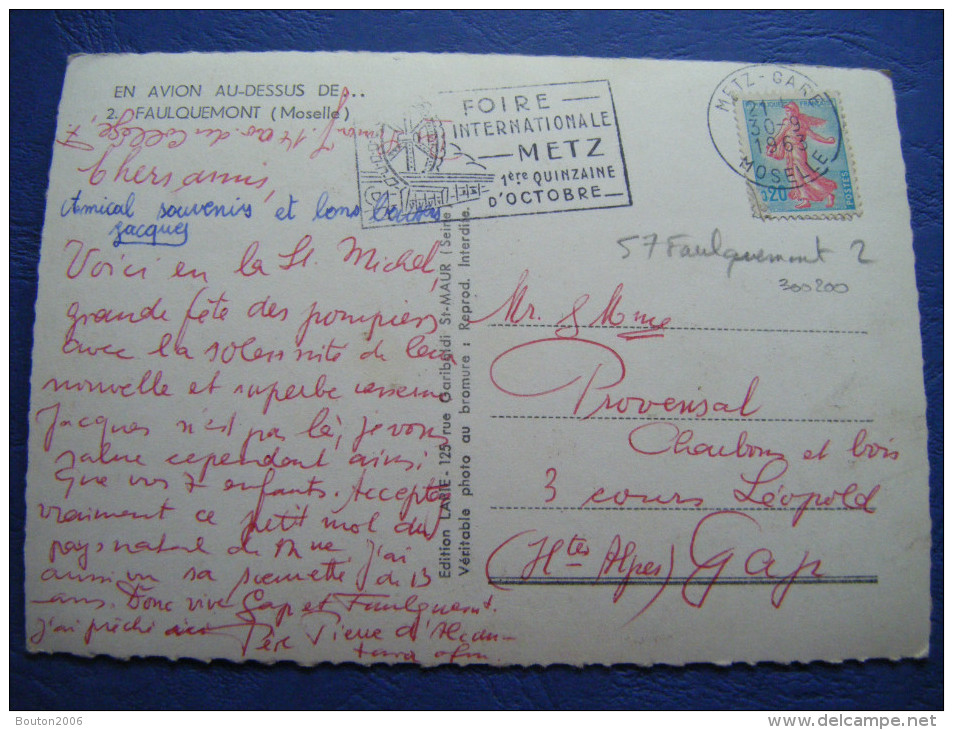 EN AVION AU-DESSUS DE...
2. FAULQUEMONT (Moselle)
FOIRE
INTERNATIONALE
METZ
1ère QUINZAINE
D'OCTOBRE
METZ-GARE
21
30-9
1963
MOSELLE
0,20
POSTES
Chers amis,
Amical souvenirs et bons baisers
Jacques
Voici en la St. Michel,
grande fête des pompiers
avec la solennité de leur
nouvelle et superbe caserne
Jacques n'est pas là, je vous
salue cependant ainsi
que vos 7 enfants. Acceptez
vraiment ce petit mot du
pays natal de Mme. J'ai
aussi vu sa sœurette de 13
ans. Donc vive Gap et Faulquemont.
j'ai prêché ici Père Pierre d'Alcan-
tara ofm.
Edition LAPIE - 125 rue Garibaldi St-MAUR (Seine
Véritable photo au bromure : Reprod. Interdite.
57 Faulquemont 2
300200
Mr. & Mme
Provensal
Charbons et bois
3 cours Léopold
(Htes Alpes) Gap
Bouton2006
delcampe.net